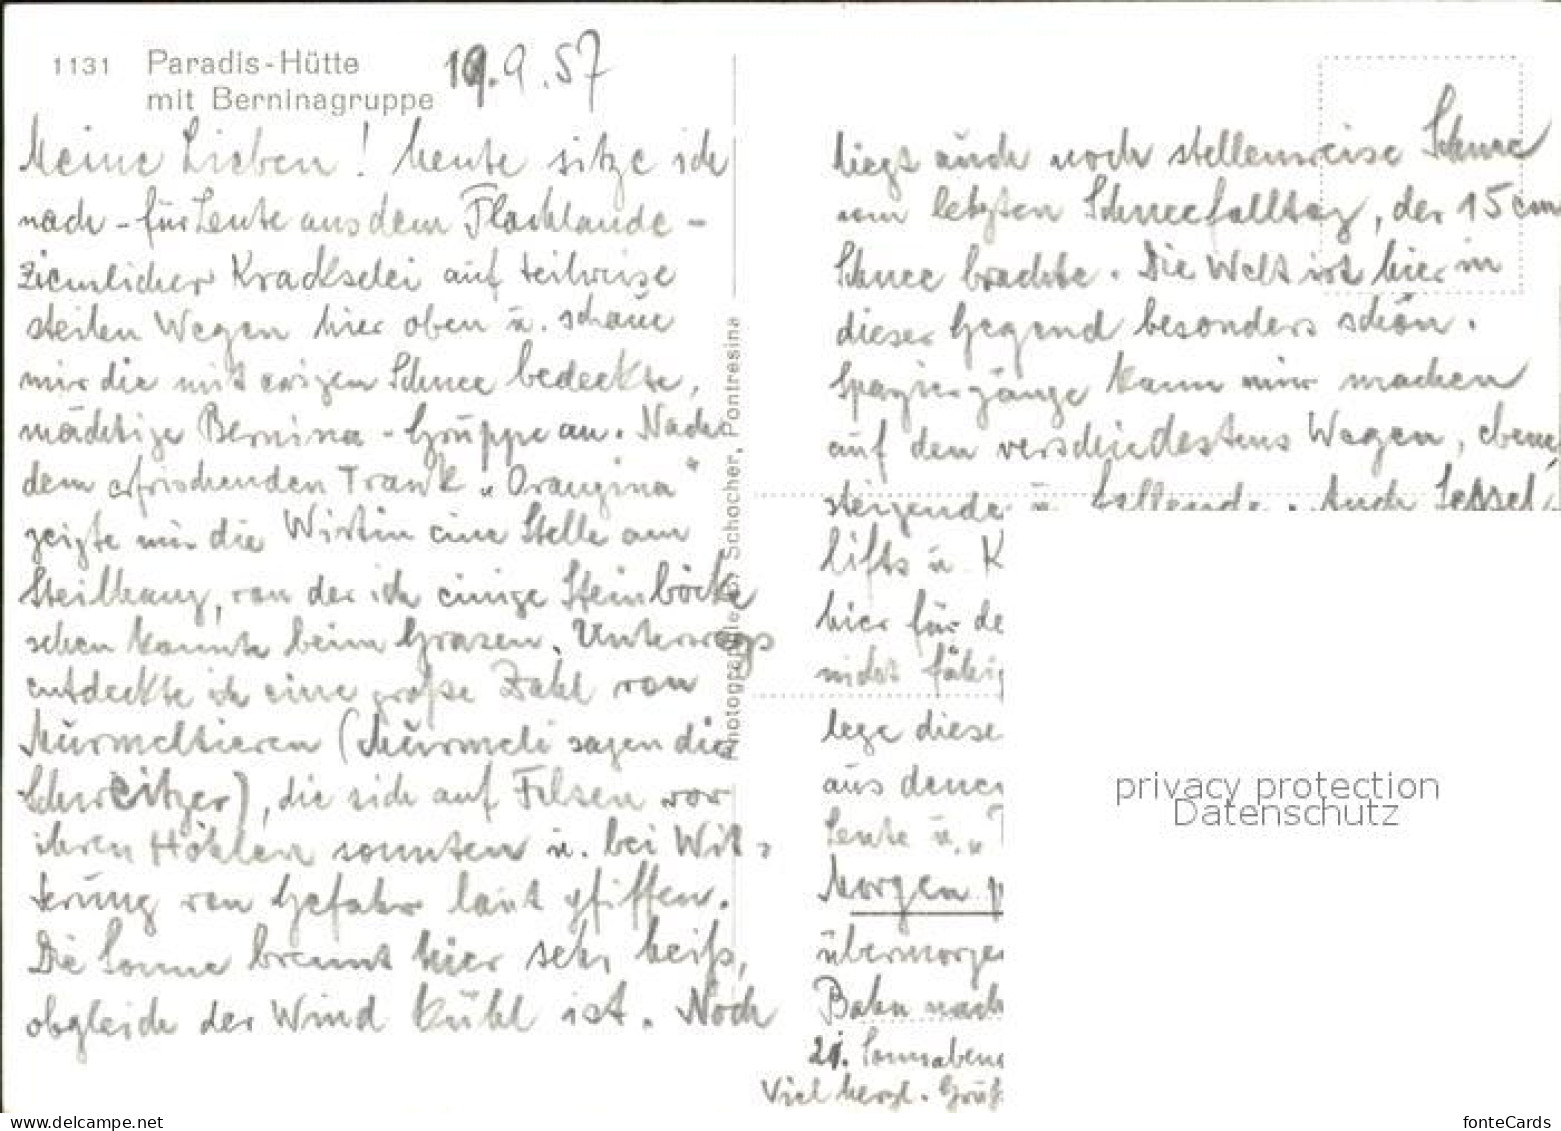 1131 Paradis-Hütte
mit Berninagruppe
19.9.57
Meine Lieben! heute sitze ich
nach - für Leute aus dem Flachlande -
ziemlicher Krackselei auf teilweise
steilen Wegen hier oben u. schaue
mir die mit ewigem Schnee bedeckte,
mächtige Bernina-Gruppe an. Nach
dem erfrischenden Trank „Orangina“
zeigte mir die Wirtin eine Stelle am
Steilhang, von der ich einige Steinböcke
sehen konnte beim Grasen. Unterwegs
entdeckte ich eine große Zahl von
Murmeltieren (Murmeli sagen die
Schweitzer), die sich auf Felsen vor
ihren Höhlen sonnten u. bei Wit-
terung von Gefahr laut pfiffen.
Die Sonne brennt hier sehr heiß,
obgleich der Wind kühl ist. Noch
Photographie Schocher, Pontresina
liegt auch noch stellenweise Schnee
vom letzten Schneefalltag, der 15 cm
Schnee brachte. Die Welt ist hier in
dieser Gegend besonders schön.
Spaziergänge kann man machen
auf den verschiedestens Wegen, ebene,
steigende u. fallende. Auch Sessel-
lifts u. K
hier für de
nicht fähig
lege diese
aus denen
Leute u. „
Morgen
übermorge
Bahn nach
21. Sonnabend
Viel herzl. Grüß
privacy protection
Datenschutz
www.ansichtskarten-center.de
fonteCards